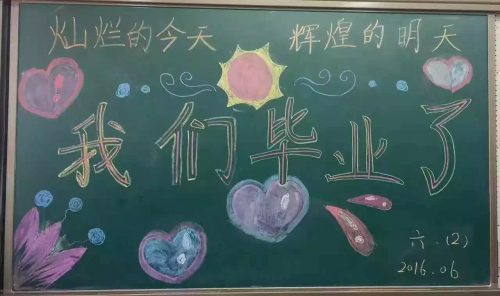 灿烂的今天 辉煌的明天
我们毕业了
六.(2)
2016.06